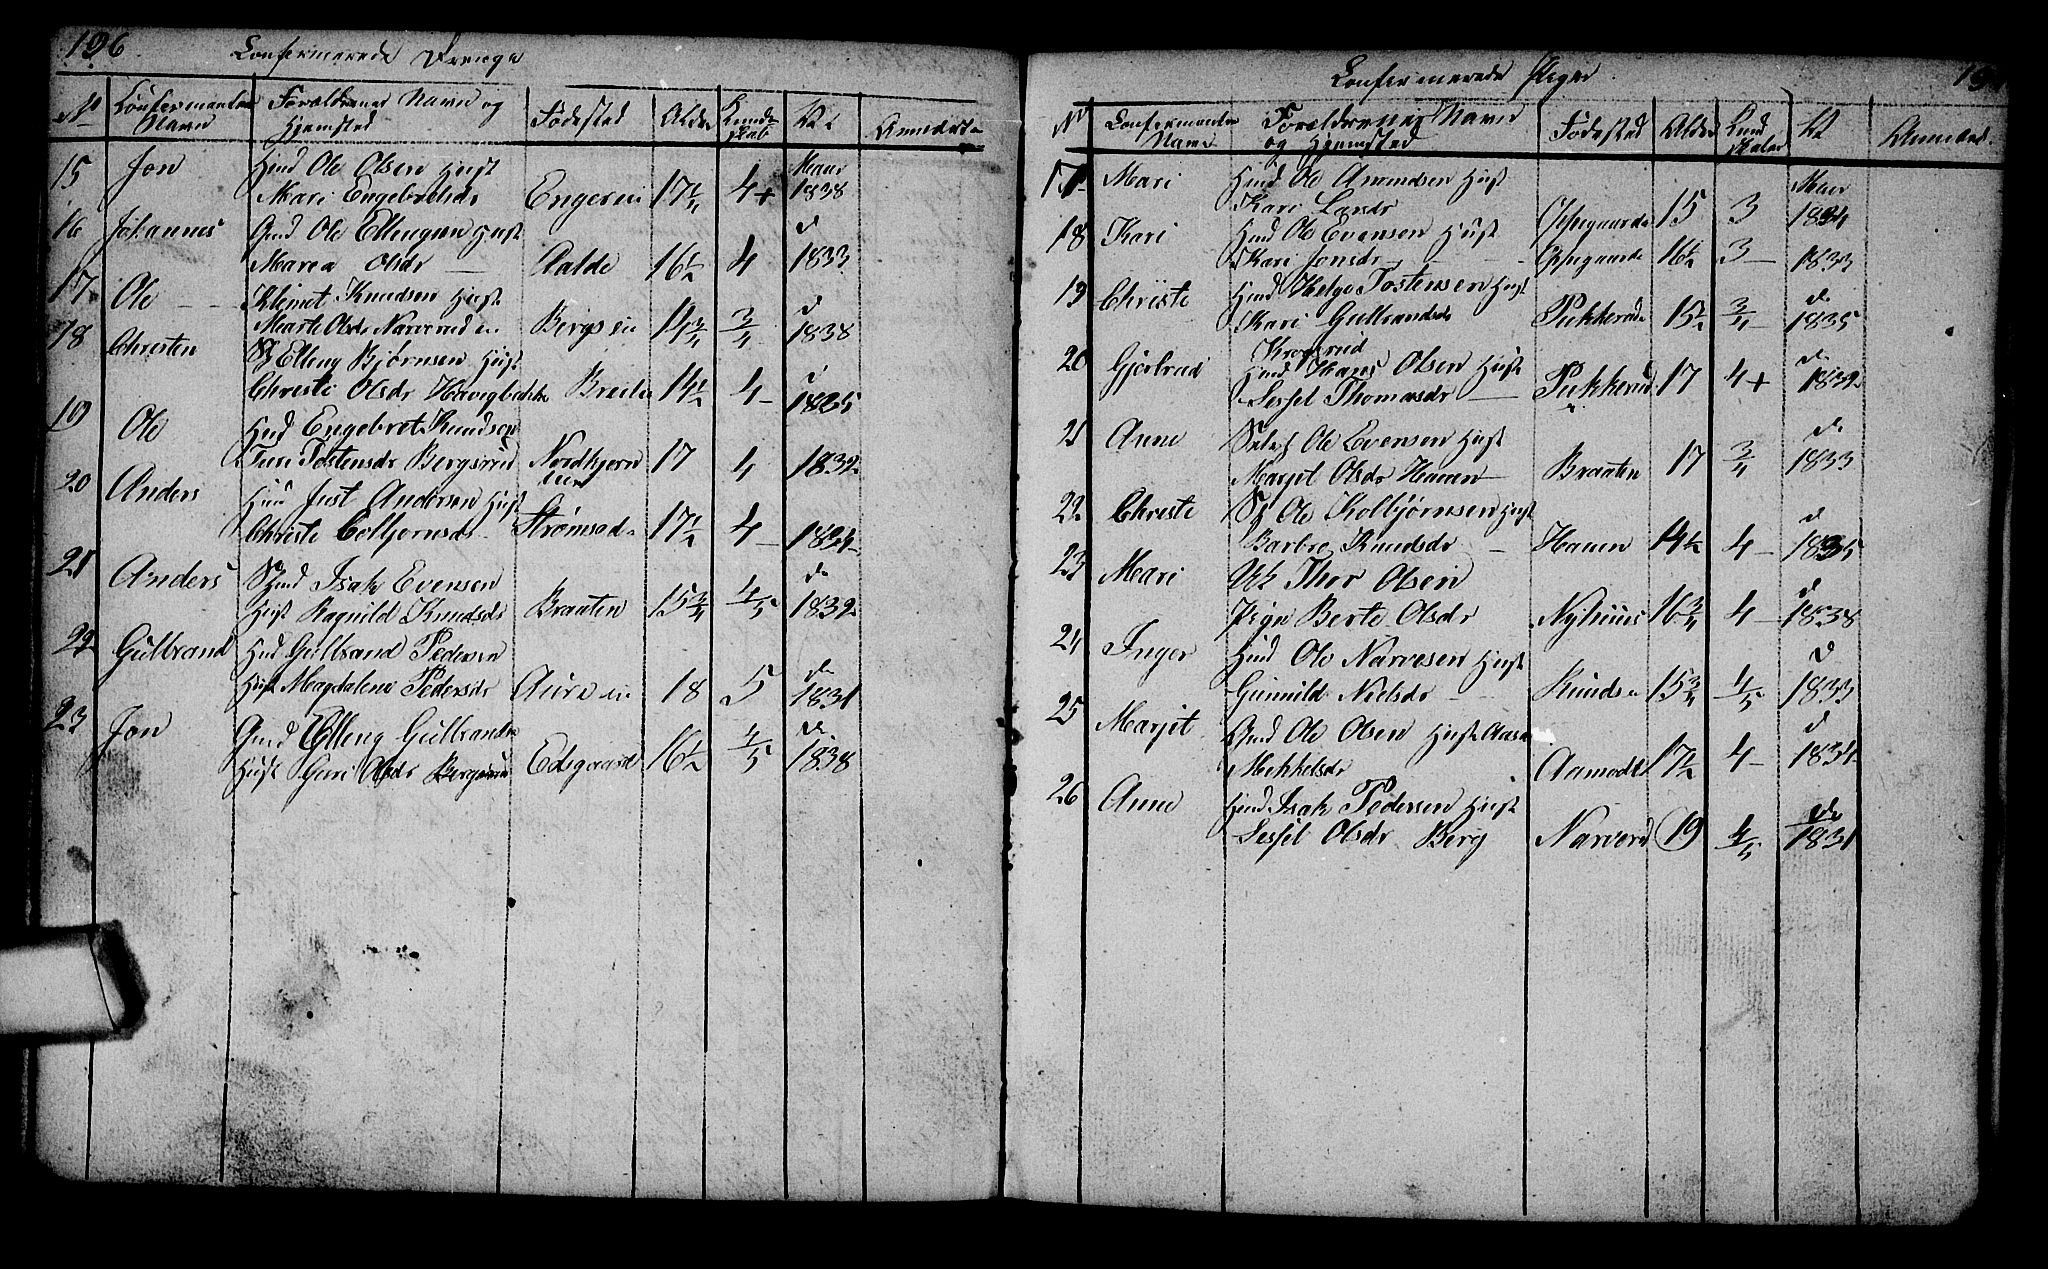 196
Confermerede Drenge
No Confermanten Navn Forældrenes Navn og Hjemsted Fødested Alder Kundskab Vac Anmærk
15 Jon Huud Ole Olsen Hust
Mari Engebretsdr Engerei 17 4+ Maur 1838
16 Johannes Gmd Ole Ellengsen Hust
Marea Olsdr Aalde 16½ 4 d 1833
17 Ole Klemet Knudsen Hust
Marte Olsdr Narverud Bergs 14¾ 3/4 d 1838
18 Christen Elleng Bjørnsen Hust
Christi Olsdr Breili 14½ 4- 1835
19 Ole Hud Engebret Knudson
Turi Tostensdr Bergsrud Nordkjern 17 4 1832
20 Anders Just Andersen Hust
Christe Colbjornsdr Strømsod 17½ 4- 1832
21 Anders Isak Evensen
Hust Ragnild Knudsdr Braaten 15¾ 4/5 do 1832
22 Gulbrand Hud Gulbrand Pedersen
Hust Magdalene Pedersdr Aure 18 5 do 1831
23 Jon Gmd Elleng Gulbrands
Hust Guri Olsdr Bergsrud Edsgaard 16½ 4/5 do 1838
Confermerede Piger
No Confermanten Navn Forældrenes Navn og Hjemsted Fødested Alder Kundskaber Vac Anmærk
17 Mari Huud Ole Amundsen Hust
Kari Larsdr Oppegaarde 15 3 Maur 1834
18 Kari Huud Ole Evensen Hust
Kari Jonsdr Oppegaarde 16½ 3- 1833
19 Christe Huud Helge Tostensen Hust
Kari Gulbrandsdr Pukkerud 15½ 3/4 do 1835
Kroverud
20 Gjertrud Huud Hans Olsen Hust
Sessel Thomasdr Pukkerud 17 4+ do 1832
21 Anne Ole Evensen Hust
Marjit Olsdr Hauen Braaten 17 3/4 do 1833
22 Christe Ole Kolbjørnsen Hust
Barbro Knudsdr Hauen 14½ 4- d 1835
23 Mari Thor Olsen
Pign Berte Olsdr Nyhuus 16¾ 4- d 1838
24 Inger Huud Ole Narvesen Hust
Gunnild Nielsdr Knuds 15¾ 4/5 d 1833
25 Marjit Gmd Ole Olsen Hust Aase
Mekkelsdr Aamodt 17½ 4- d 1834
26 Anne Huud Isak Pedersen Hust
Sessel Olsdr Berg Narverud 19 4/5 do 1831